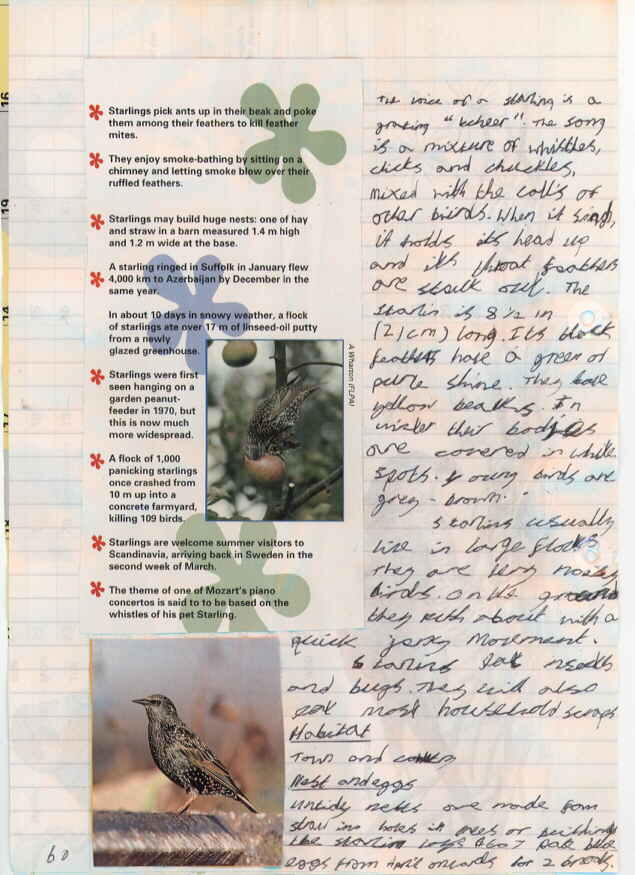 Starlings pick ants up in their beak and poke
them among their feathers to kill feather
mites.
They enjoy smoke-bathing by sitting on a
chimney and letting smoke blow over their
ruffled feathers.
Starlings may build huge nests: one of hay
and straw in a barn measured 1.4 m high
and 1.2 m wide at the base.
A starling ringed in Suffolk in January flew
4,000 km to Azerbaijan by December in the
same year.
In about 10 days in snowy weather, a flock
of starlings ate over 17 m of linseed-oil putty
from a newly
glazed greenhouse.
Starlings were first
seen hanging on a
garden peanut-
feeder in 1970, but
this is now much
more widespread.
A flock of 1,000
panicking starlings
once crashed from
10 m up into a
concrete farmyard,
killing 109 birds.
Starlings are welcome summer visitors to
Scandinavia, arriving back in Sweden in the
second week of March.
The theme of one of Mozart's piano
concertos is said to to be based on the
whistles of his pet Starling.
A Wharton (FLPA)
The voice of a starling is a
grating "tcheer". The song
is a mixture of whistles,
clicks and chuckles,
mixed with the calls of
other birds. When it sings,
it holds its head up
and its throat feathers
are stuck out. The
starlin is 8 1/2 in
(21cm) long. Its black
feathers have a green or
purple shine. They have
yellow beaks. In
winter their bodies
are covered in white
spots. young birds are
grey - brown.
starling usually
live in large flocks
They are very noisey
Birds. On the ground
they rush about with a
quick jerky movement.
starling eat
and bugs. They will also
eat most household scraps
Habitat
Town and
Nest and eggs
untidy nests are made from
straw in holes in trees or buildings
the starling lays 4 to 7 pale blue
eggs from April onwards for 2 broods.
60
16
19
14
17
18